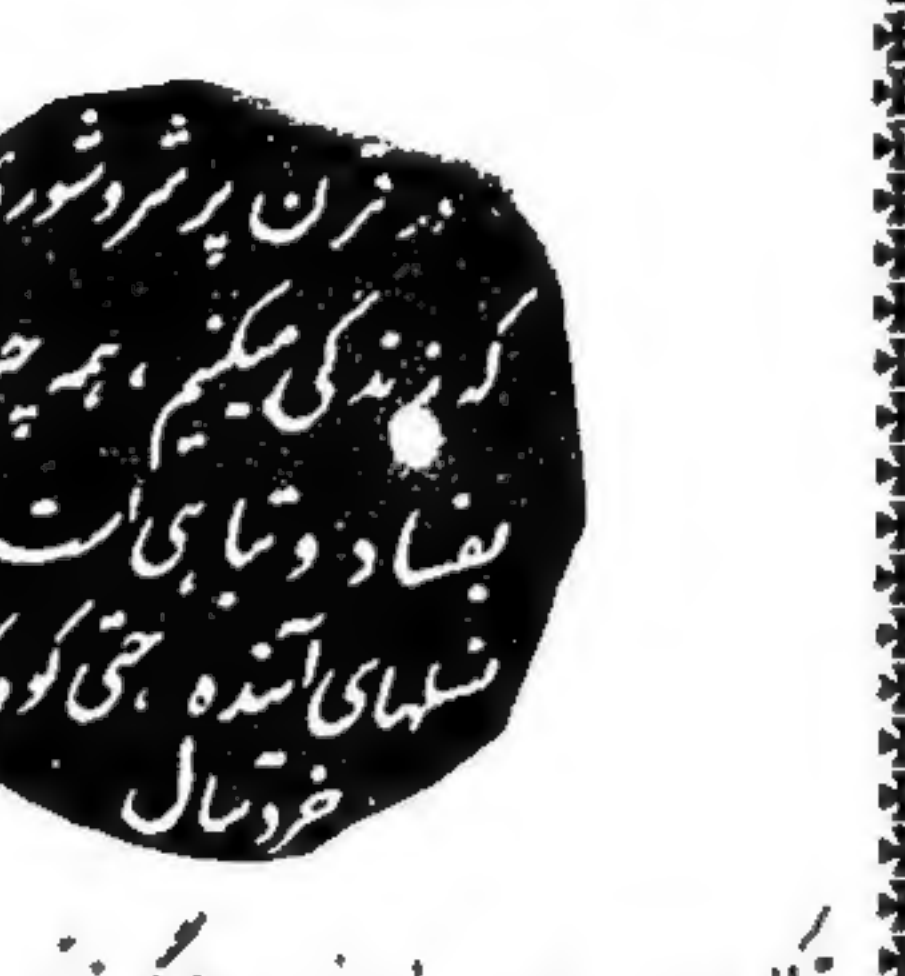 قرن پر شر و شوری
که زندگی میکنیم ، همه
بفساد و تباهی است
نسلهای آینده ، حتی
خردسال